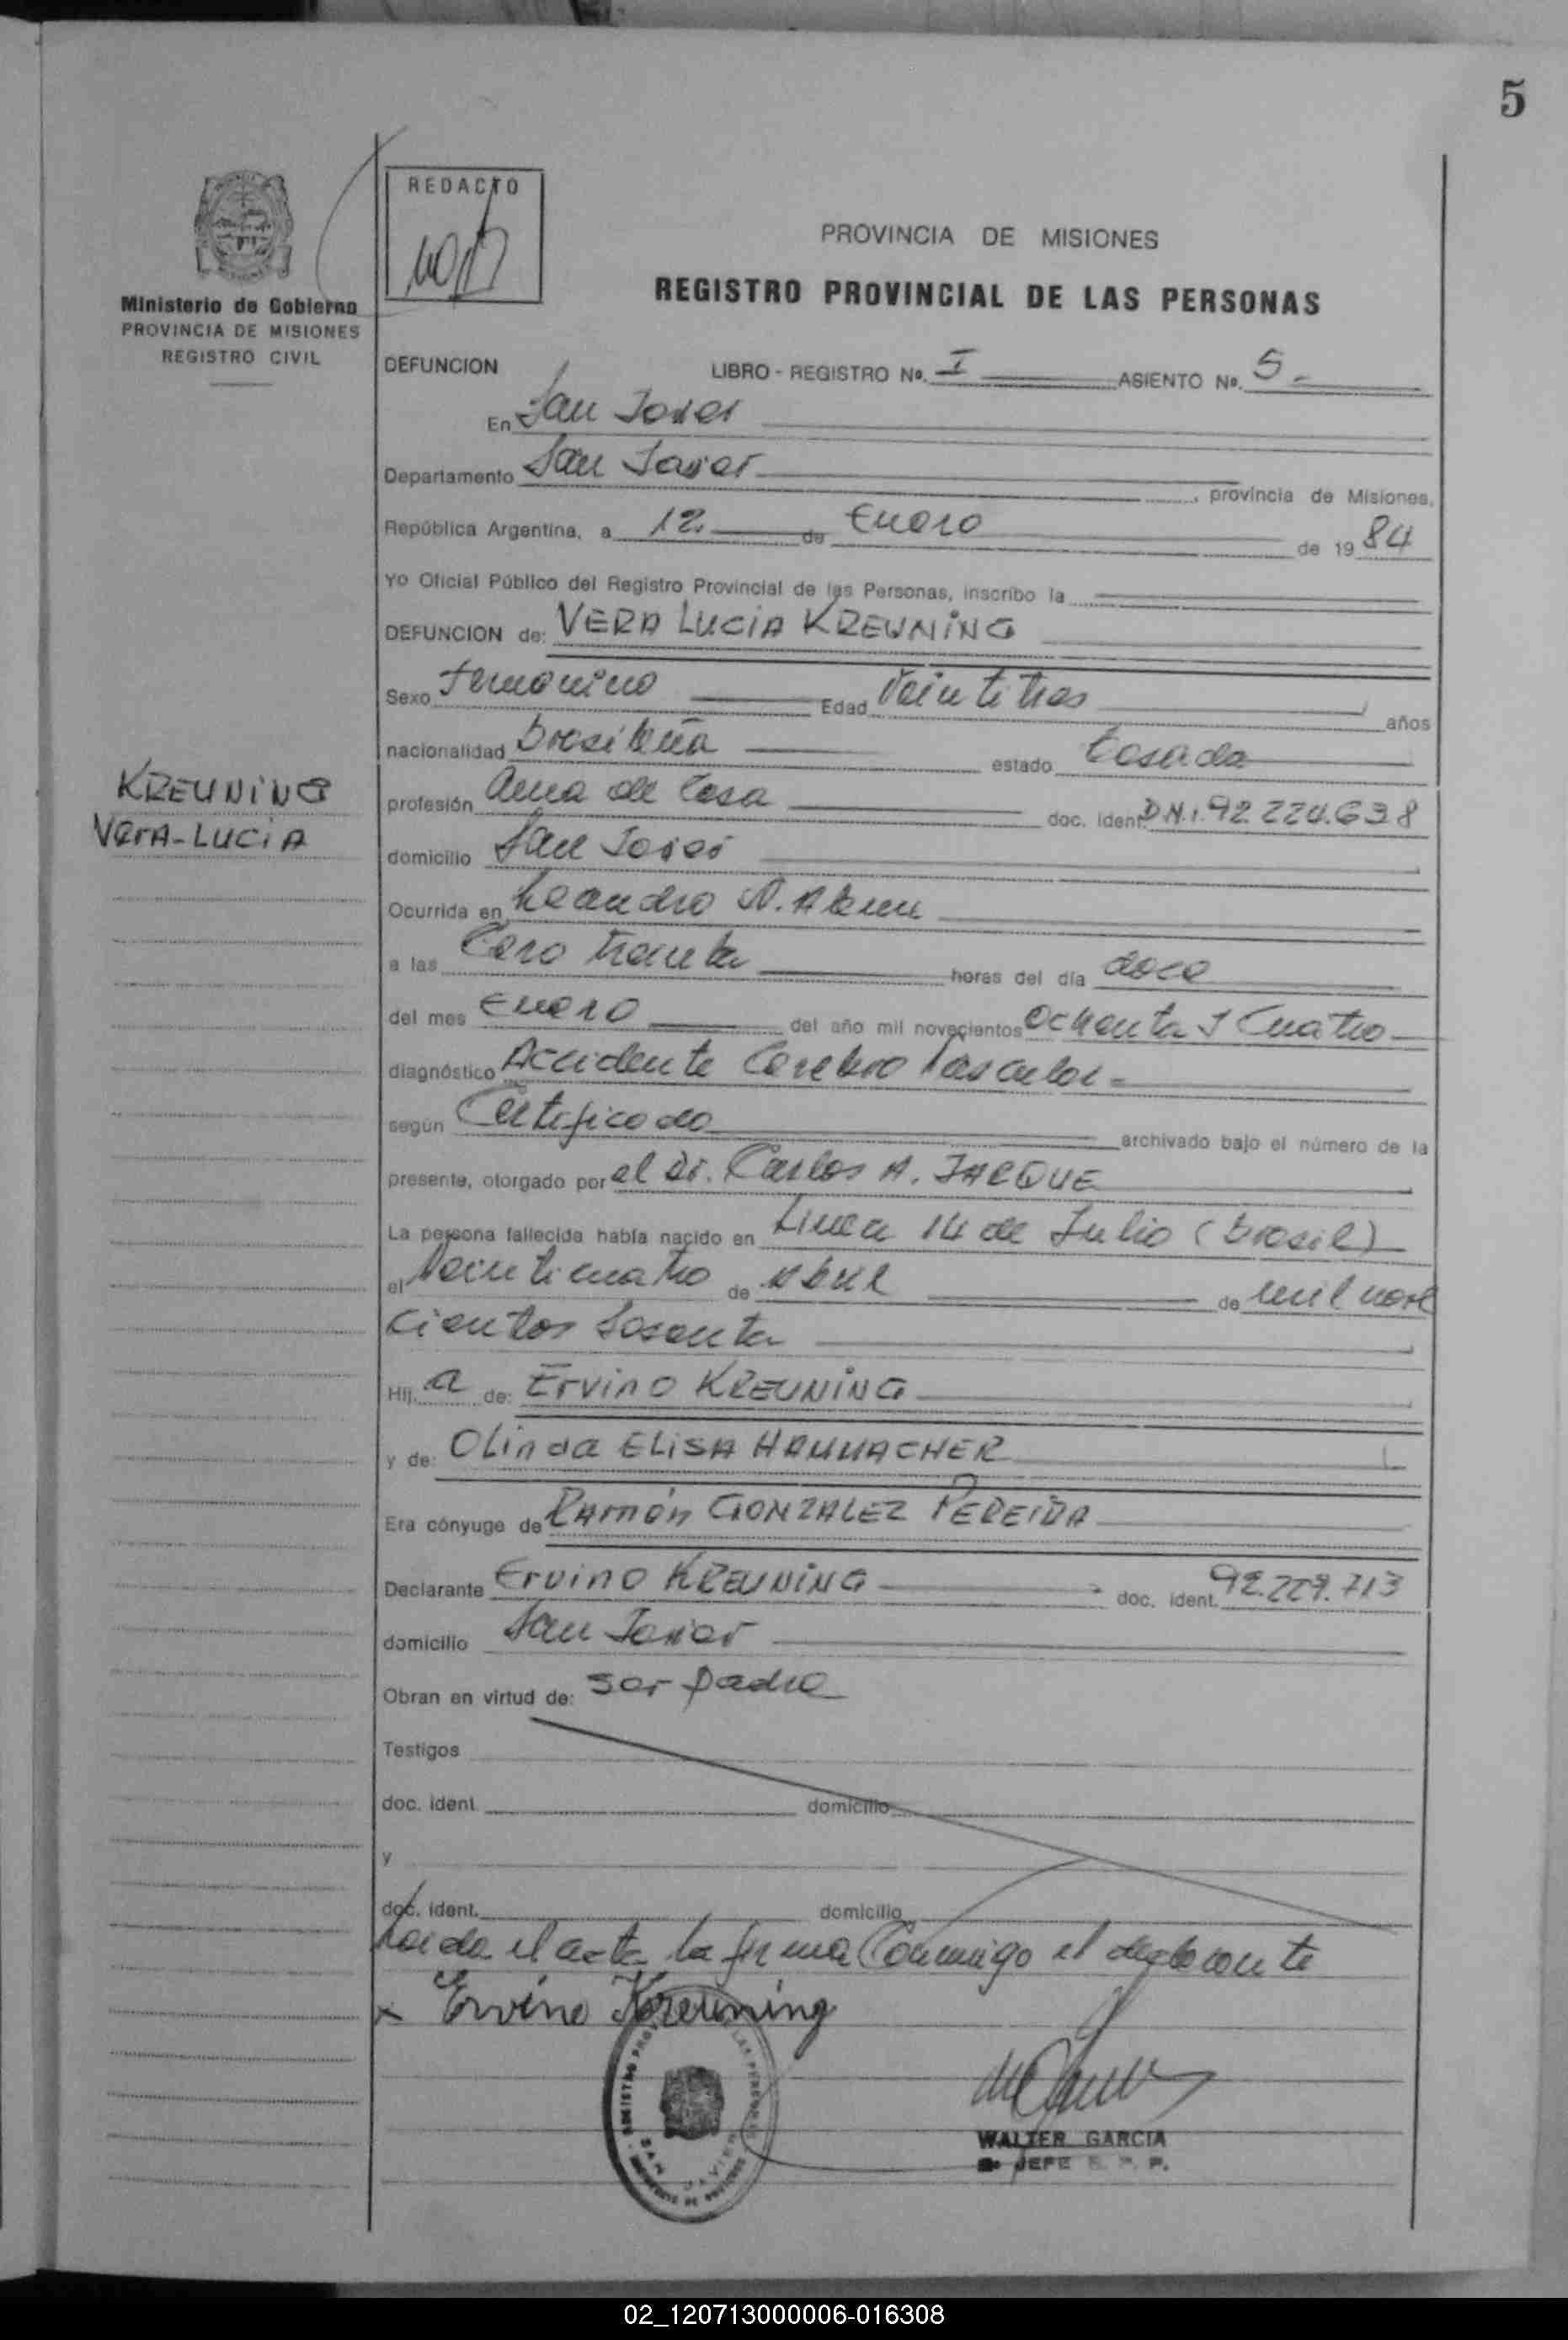 5
REDACTO
PROVINCIA DE MISIONES
REGISTRO PROVINCIAL DE LAS PERSONAS
Ministerio de Gobierno
PROVINCIA DE MISIONES
REGISTRO CIVIL
DEFUNCION LIBRO - REGISTRO Nº. I ASIENTO Nº. 5-
En San Javier
Departamento San Javier, provincia de Misiones,
República Argentina, a 12 de Enero de 1984
Yo Oficial Público del Registro Provincial de las Personas, inscribo la
DEFUNCION de: VERA LUCIA KREUNING
Sexo Femenino Edad Veintitres años
nacionalidad Brasileña estado Casada
KREUNING
VerA-LUCIA
profesión Ama de Casa doc. ident. D.N.I. 92 220.638
domicilio San Javier
Ocurrida en Leandro N. Alem
a las Cero treinta horas del día doce
del mes Enero del año mil novecientos Ochenta y Cuatro
diagnóstico Accidente Cerebro Vascular-
según Certificado archivado bajo el número de la
presente, otorgado por el Dr. Carlos A. JARQUE
La persona fallecida había nacido en Linea 14 de Julio (Brasil)
el Veinticuatro de Abril de mil nove
cientos Sesenta
Hij a de: Ervino KREUNING
y de: Olinda ELISA HAMMACHER
Era cónyuge de Ramón GONZALEZ PEREIRA
Declarante Ervino KREUNING doc. ident. 92.229.713
domicilio San Javier
Obran en virtud de: ser padre
Testigos
doc. ident. domicilio
y
doc. ident. domicilio
Leida el acta la firma Conmigo el declarante
x Ervino Kreuning
REGISTRO PROVINCIAL DE LAS PERSONAS
SAN JAVIER
WALTER GARCIA
JEFE R. P. P.
02_120713000006-016308